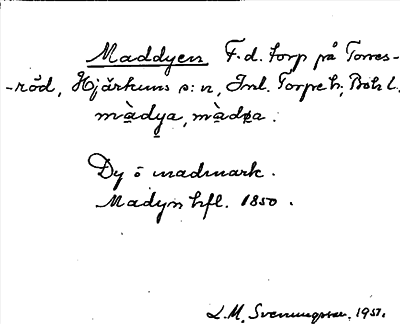 Maddyen F.d. torp på Torres-
-röd, Hjärtums s:n, Inl. Torpe h; Boh l.
màdya, màdɐa.
Dy ō madmark.
Madyn hfl. 1850.
L.M. Svenungsson. 1951.